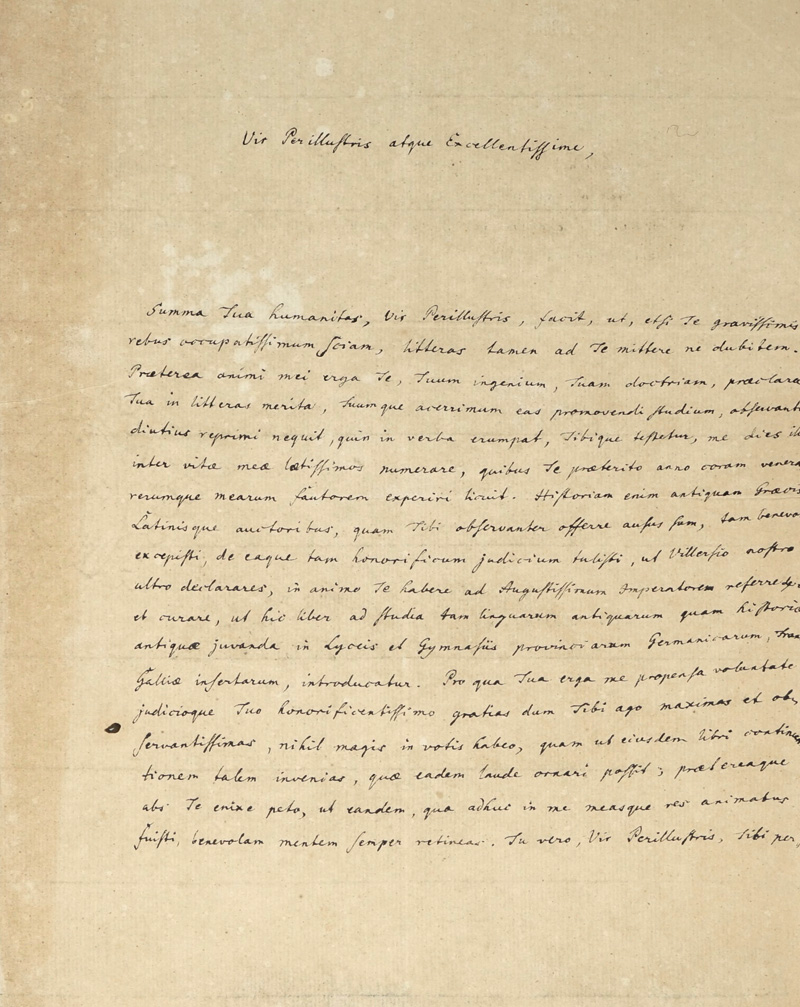 Vir Perilluſtris atque Excellentiſſime,
Summa Tua humanitas, Vir Perilluſtris, facit, ut, etſi Te graviſſimis
rebus occupatiſſimum ſciam, litteras tamen ad Te mittere ne dubitem.
Præterea animi mei erga Te, Tuum ingenium, Tuam doctriam, præclara
Tua in litteras merita, Tuumque acerrimum eas promovendi ſtudium, obſervant
diutius reprimi nequit, quin in verba erumpat, Tibique teſtetur, me dies ill
inter vitæ meæ lætiſſimos numerare, quibus Te præterito anno coram venera
rerumque mearum fautorem experiri licuit. Hiſtoriam enim antiquam Græcis
Latinisque auctoribus, quam Tibi obſervanter offerre auſus ſum, tam benevo
excepiſti, de eaque tam honorificum judicium tuliſti, ut Villerſio noſtro
ultro declarares, in animo Te habere ad Auguſtiſſimum Imperatorem referre
et curare, ut hic liber ad ſtudia tam linguarum antiquarum quam hiſtoriæ
antiquæ juvanda in Lyceis et Gymnaſiis provinciarum Germanicarum,
Galliæ inſertarum, introducatur. Pro qua Tua erga me propenſa voluntate
judicioque Tuo honorificentiſſimo gratias dum Tibi ago maximas et ob
ſervantiſſimas, nihil magis in votis habeo, quam ut ejusdem libri continua
tionem talem invenias, quæ eadem laude ornari poſſit; prætereaque
abs Te enixe peto, ut eandem, qua adhuc in me measque res animatus
fuiſti, benevolam mentem ſemper retineas. Tu vero, Vir Perilluſtris, Tibi per